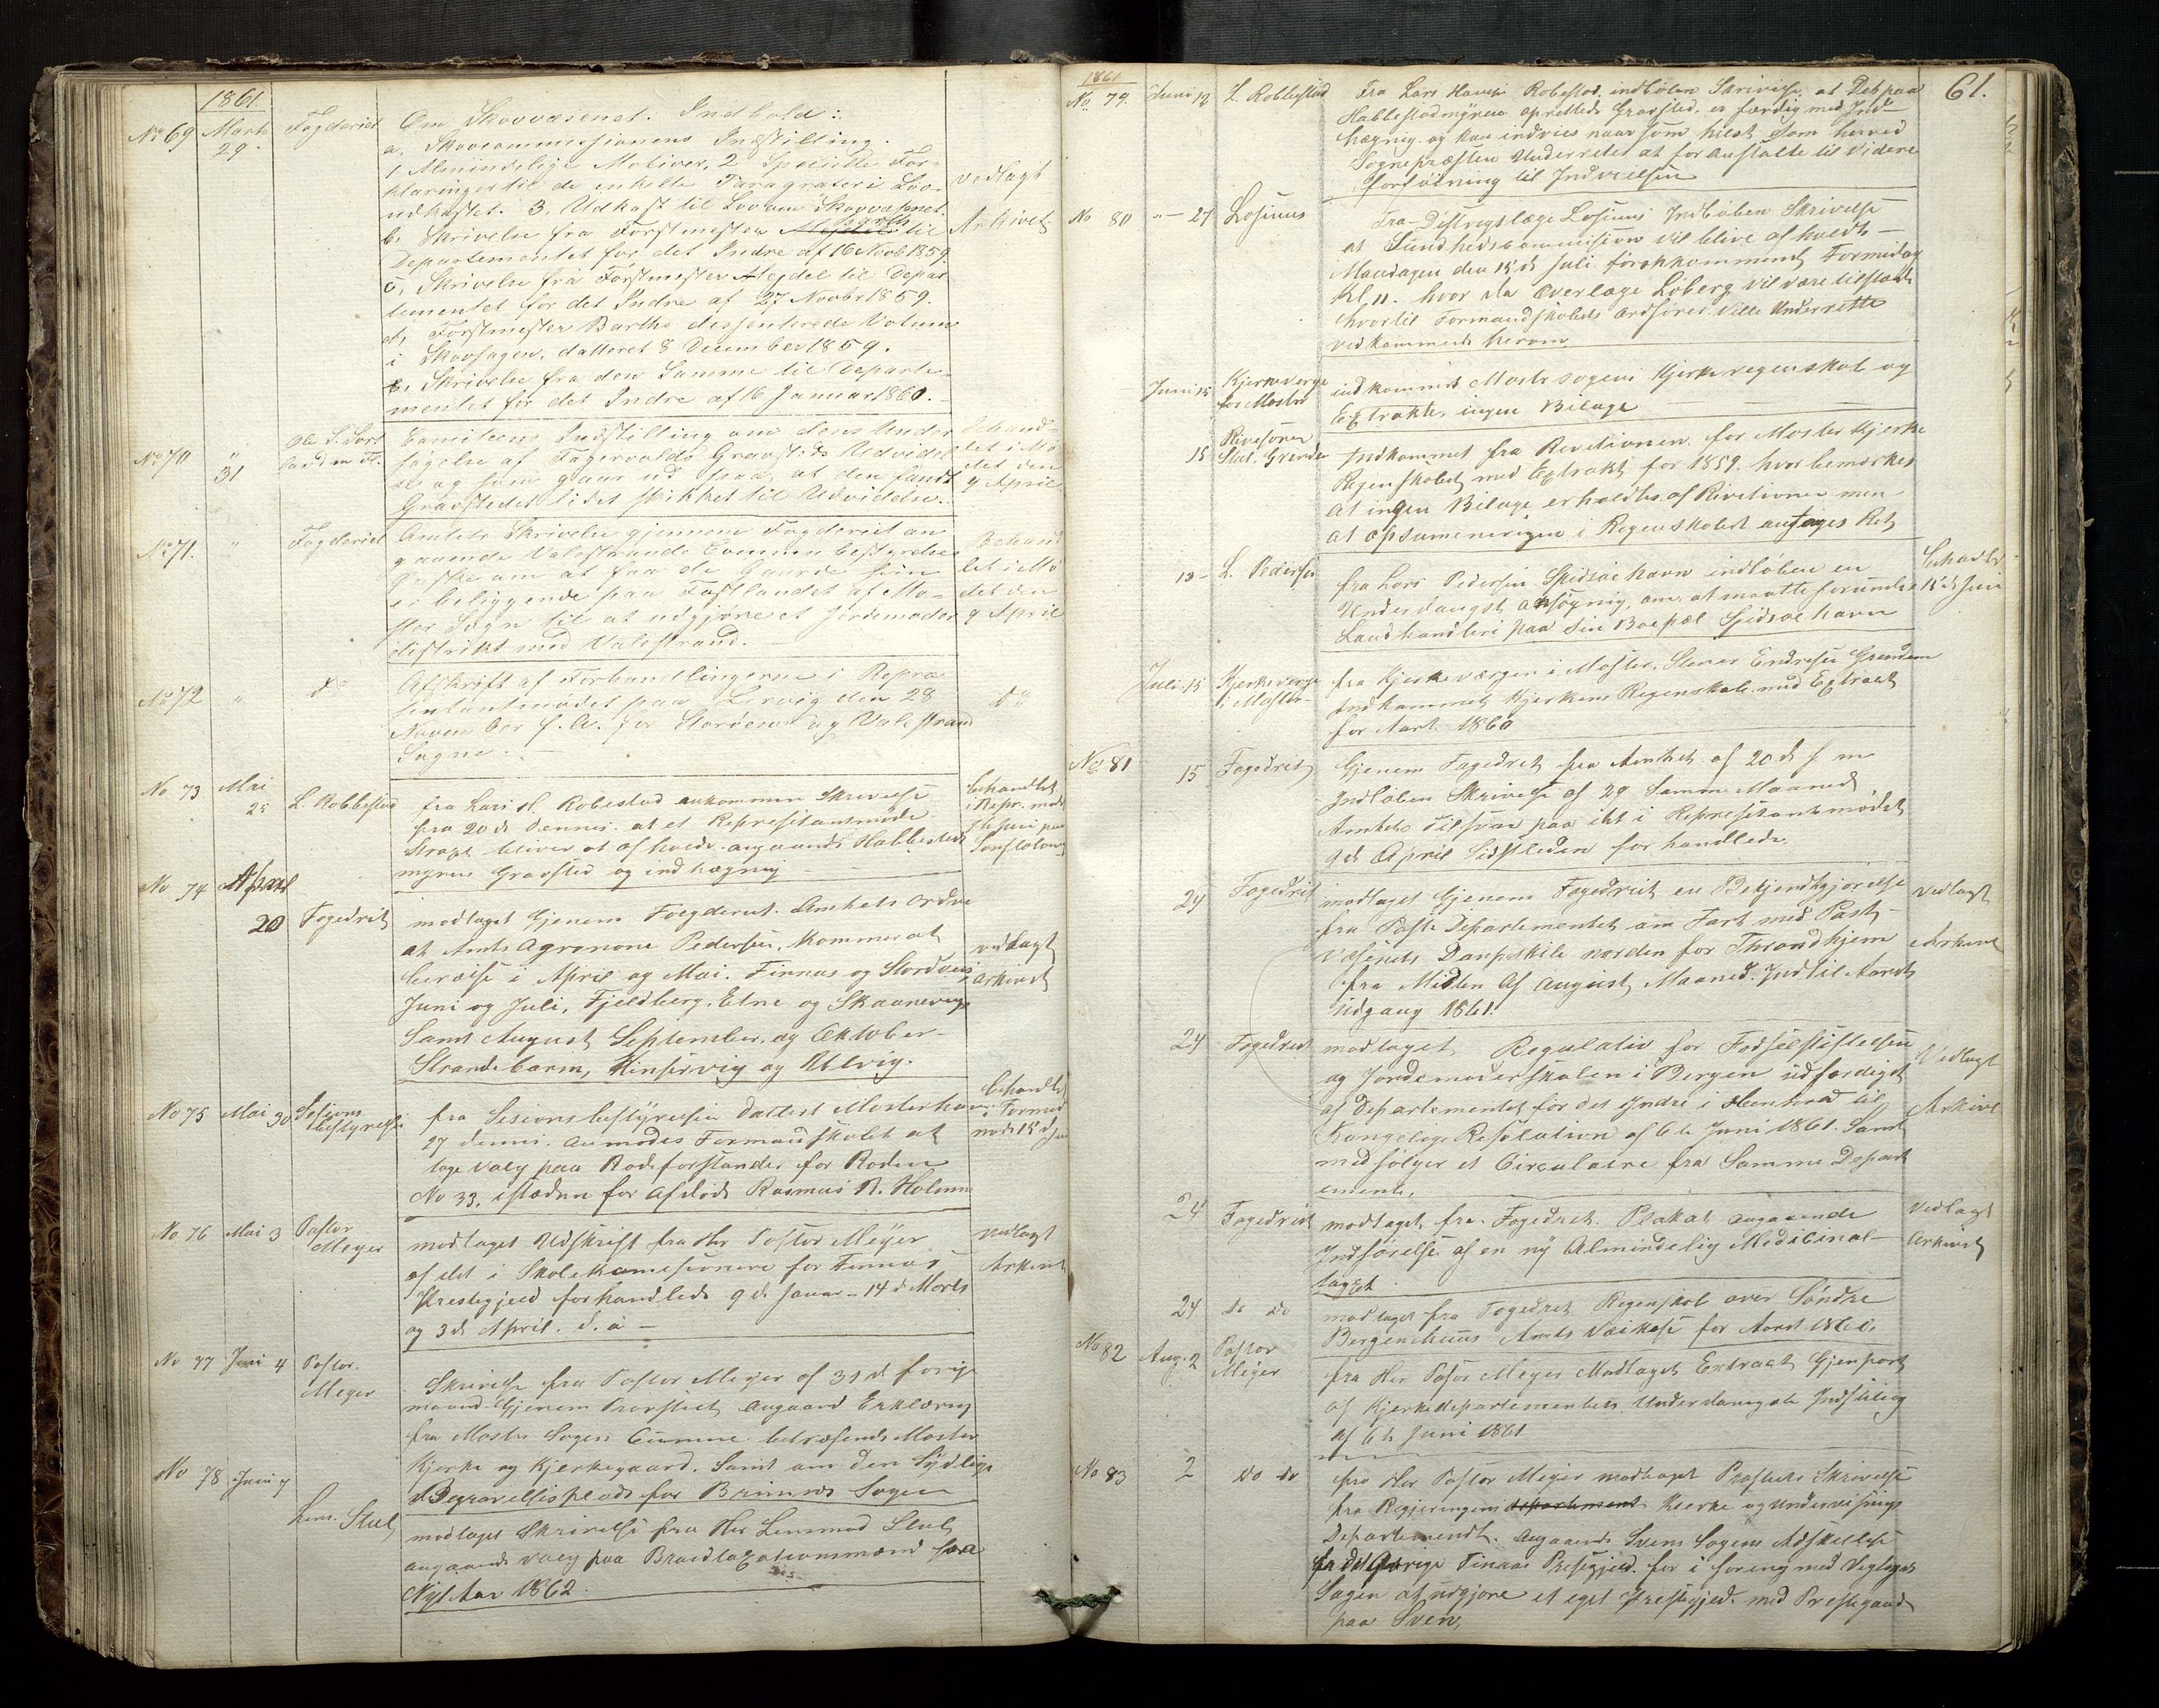 1861.
No 69 Marts 29. Fogderiet Om Skovvæsenet. Indhold:
a, Skovcommissionens Indstilling.
1 Almindelige Motiver, 2 Specielle For-
klaringer til de enkelte Paragrafer i Lov-
udkastet. 3. Udkast til Lov om Skovvæsnet.
vedlagt
b, Skrivelse fra Forstmester Barth til
Arkivet
Departementet for det Indre af 16 Novb 1859.
c, Skrivelse fra Forstmester Mejdel til Depar-
tementet for det Indre af 27 Novbr 1859.
d, Forstmester Barths dissenterede Votum
i Skovsagen, datteret 8 December 1859.
e. Skrivelse fra den Samme til Departe-
mentet for det Indre af 16 Januar 1860.
No 70 " 31 Ole S.
Comiteens Indstilling om dens Under
søgelse af Fagervolds Gravsteds Udvidel
se og som gaar ud paa, at den fandt
Gravstedet lidet skikket til Udvidelse.
behand-
let i Mø
det den
9 April
No 71. " Fogderiet Amtets Skrivelse gjennem Fogderiet an
gaaende Valestrands Commun bestyrelses
Ønske om at faa de Gaarde som
er beliggende paa Fastlandet af Mo-
ster Sogn til at udgjøre et Jordemoder
distrikt med Valestrand.
Behand
let i Mø
det den
9 April
No 72 " do Afskrift af Forhandlingerne i Repræ-
sentantmødet paa Lervig den 28
November f. A. for Stordøens og Valestrand
Sogne.
do
No 73 Mai 25 L. Robbestad fra Lars H. Robestad ankommen Skrivelse
fra 20de dennes. at et Represitantmøde
strags bliver at afholde angaaende Habbestad
myren Gravsted og indhægning
behandlet
i Repr. møde
No 74 April
20 Fogedrit modtaget Gjenem Foegderiet. Amtets Ordre
at Amts Agronone Pedersen, kommer at
bereise i April og Mai. Finnas og Stordøen
Juni og Juli, Fjeldberg, Etne og Skaanevigs
Samt August September, og Oktober
Strandebarm, Kinservig og Ulvig.
vedlagt
arkivet
No 75 Mai 30 Sesions bestyrelse fra Sesionsbestyrelsen Datteret Mosterhavn
27 dennes. anmodes Formandskabet at
tage Valg paa Rodeforstander for Roden
No 33, istæden for Afdøde Rasmus R. Holme
behandlet
i Formands
møde 15de Juni
No 76 Mai 3 Pastor Meyer modtaget Udskrift fra Her Pastor Meÿer
af det i Skolekomisionere for Finnas
Prestegjeld forhandlede 9de Januar - 14de Marts
og 3de April. d. a -
vedlagt
Arkivet
No 77 Juni 4 Pastor. Meyer Skrivelse fra Pastor Meyer af 31d forrige
maaned. Gjenem Provstiet angaaend Erklæring
fra Moster Sogns Cumune. betræfende Moster
Kjerke og Kjerkegaard. Samt om den Sÿdlige
Begravelsisplads for Brimnes Sogen
No 78 Juni 7 Lens. Stub modtaget Skrivelse fra Her Lensmand Stub
angaaende valg paa Brandtaxationsmænd fra
Nyt Aar 1862.
1861 61.
No. 79. Juni 12 L. Robbestad Fra Lars Hansen Robestad. indløben Skrivelse, at Det paa
Habbestadmÿren oprettede Gravsted, er færdig med Ind-
hægnig og kan indvies naar som hilst Som herved
Sognepræsten Underretes at foranstalte til Videre
forføining til Indvielsen
No 80 " - 27 Losius Fra Distrigtslæge Losius Indløben Skrivelse
at Sundhedscommisionen vil blive afholdt
Mandagen den 15de Juli førstkommende Formidag
Kl. 11. hvor da Overlæge Løberg vil være tilstæde
hvortil Formandskabets Ordfører. Ville Underrette
vedkommende herom
Juni 15 Kjerkeverge for Moster indkommet Mostersogens Kjerkeregenskab og
Extrakt, ingen Bilage
15 Rivisoren Stub. Grinde Indkommet fra Revitionen for Moster Kjerke
Regenskabet med Extrakt for 1859. hvor bemerkes
at ingen Bilage erholdtes af Rivitionen men
at opsumeneringen i Regenskabet antages Ret
13 - L. Pedersen fra Lars Pedersen Spidsøehavn indløben en
Underdangst Ansøgnig, om at maatte forundes
Landhandleri paa sin Boepæl Spidsøehavn
behandlet
15de Juni
Juli 15 Kjerkeverge i Moster - fra Kjerkeværgen i Moster, Stener Endresen Grindem
Indkommet Kjerkens Regenskab med Extract
for Aaret 1860
No 81 15 Fogedrit Gjenem Fogedret fra Amtet af 20de f m
Indløben Skrivelse af 29 Samme Maaned
Amtets Tilsvar paa ikt i Represitantmødet
9de April Sidstleden forhandlede.
24 Fogedrit modtaget Gjenem Fogedriet en Bekjendtgjørelse
fra Poste Departementet om Fart med Post-
Væsenets Danpskibe norden for Throndhjem
fra Midten Af August Maaned. Indtil Aarets
Udgang 1861.
vedlagt
Arkivet
24 Fogedrit modtaget Regulativ for Fødselstiftelsen
og Jordemoderskolen i Bergen udfærdiget
af Departementet for det Indre i Henhold til
Kongelige Resolution af 6te Juni 1861. Samt
medfølger et Circulaire fra Samme Depart
ement.
Vedlagt
Arkive
24 Fogedrit modtaget fra Fogedret. Plakat angaaende
Indførelse af en nÿ Almindelig Medicinal-
taxt.
vedlagt
arkivet
24 do do modtaget fra Fogedret Regenskab over Søndre
Bergenshuus Amts Veikase for Aaret 1860.
No 82 Aug. 2 Pastor Meiger fra Her Pastor Meyer Modtaget Extract Gjenpart
af Kjerkedepartementets Underdanigste Indstilling
af 6te Juni 1861
No 83 2 do do fra Her Pastor Meiger modtaget Prostiets Skrivelse
fra Regjeringens departement Kierke og Undervisnings
Departementet. angaaende Svens Sogens Adskillelse
fra det øvrige Finnas Prestegjeld. for i forening med Veglegds
Sogen at udgjøre et eget Prestegjed. med Prestegaard
paa Sven,